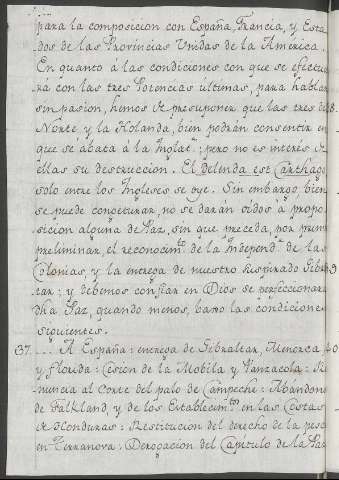 para la composicion con España, Francia, y Esta
dos de las Provincias Unidas de la America.
En quanto á las condiciones con que se efectua
rá con las tres Potencias ultimas, para hablar
sin pasion, hemos de presuponer que las tres del
Norte, y la Holanda, bien podrán consentir en
que se abata á la Inglat.ª; pero no es interés de
ellas su destruccion. El delenda est Carthago
solo entre los Ingleses se oye. Sin embargo bien
se puede conjeturar, no se darán oídos á propo
sicion alguna de Paz, sin que preceda, por punto
preliminar, el reconocim.to de la Independ.ª de las
Colonias, y la entrega de nuestro suspirado Gibral
tar; y debemos confiar en Dios se perfeccionará
dha Paz, quando menos, baxo las condiciones
siguientes.
37. ... A España: entrega de Gibraltar, Menorca,
y Florida: Cesion de la Mobila y Panzacola: Re
nuncia al Corte del palo de Campeche: Abandono
de Falkland, y de los Establecim.tos en las Costas
de Honduras: Restitucion del derecho de la pesca
en Terranova: Derogacion del Capitulo de la Paz